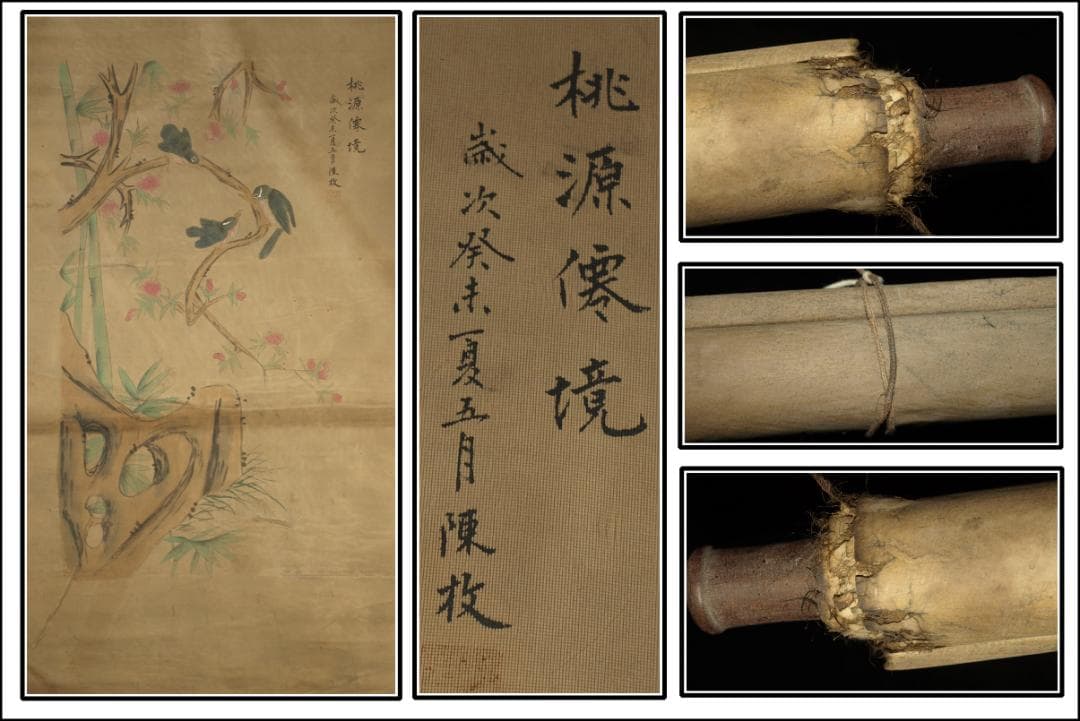 桃源僊境
歲次癸未夏五月陳枚
桃源僊境
歲次癸未夏五月陳枚